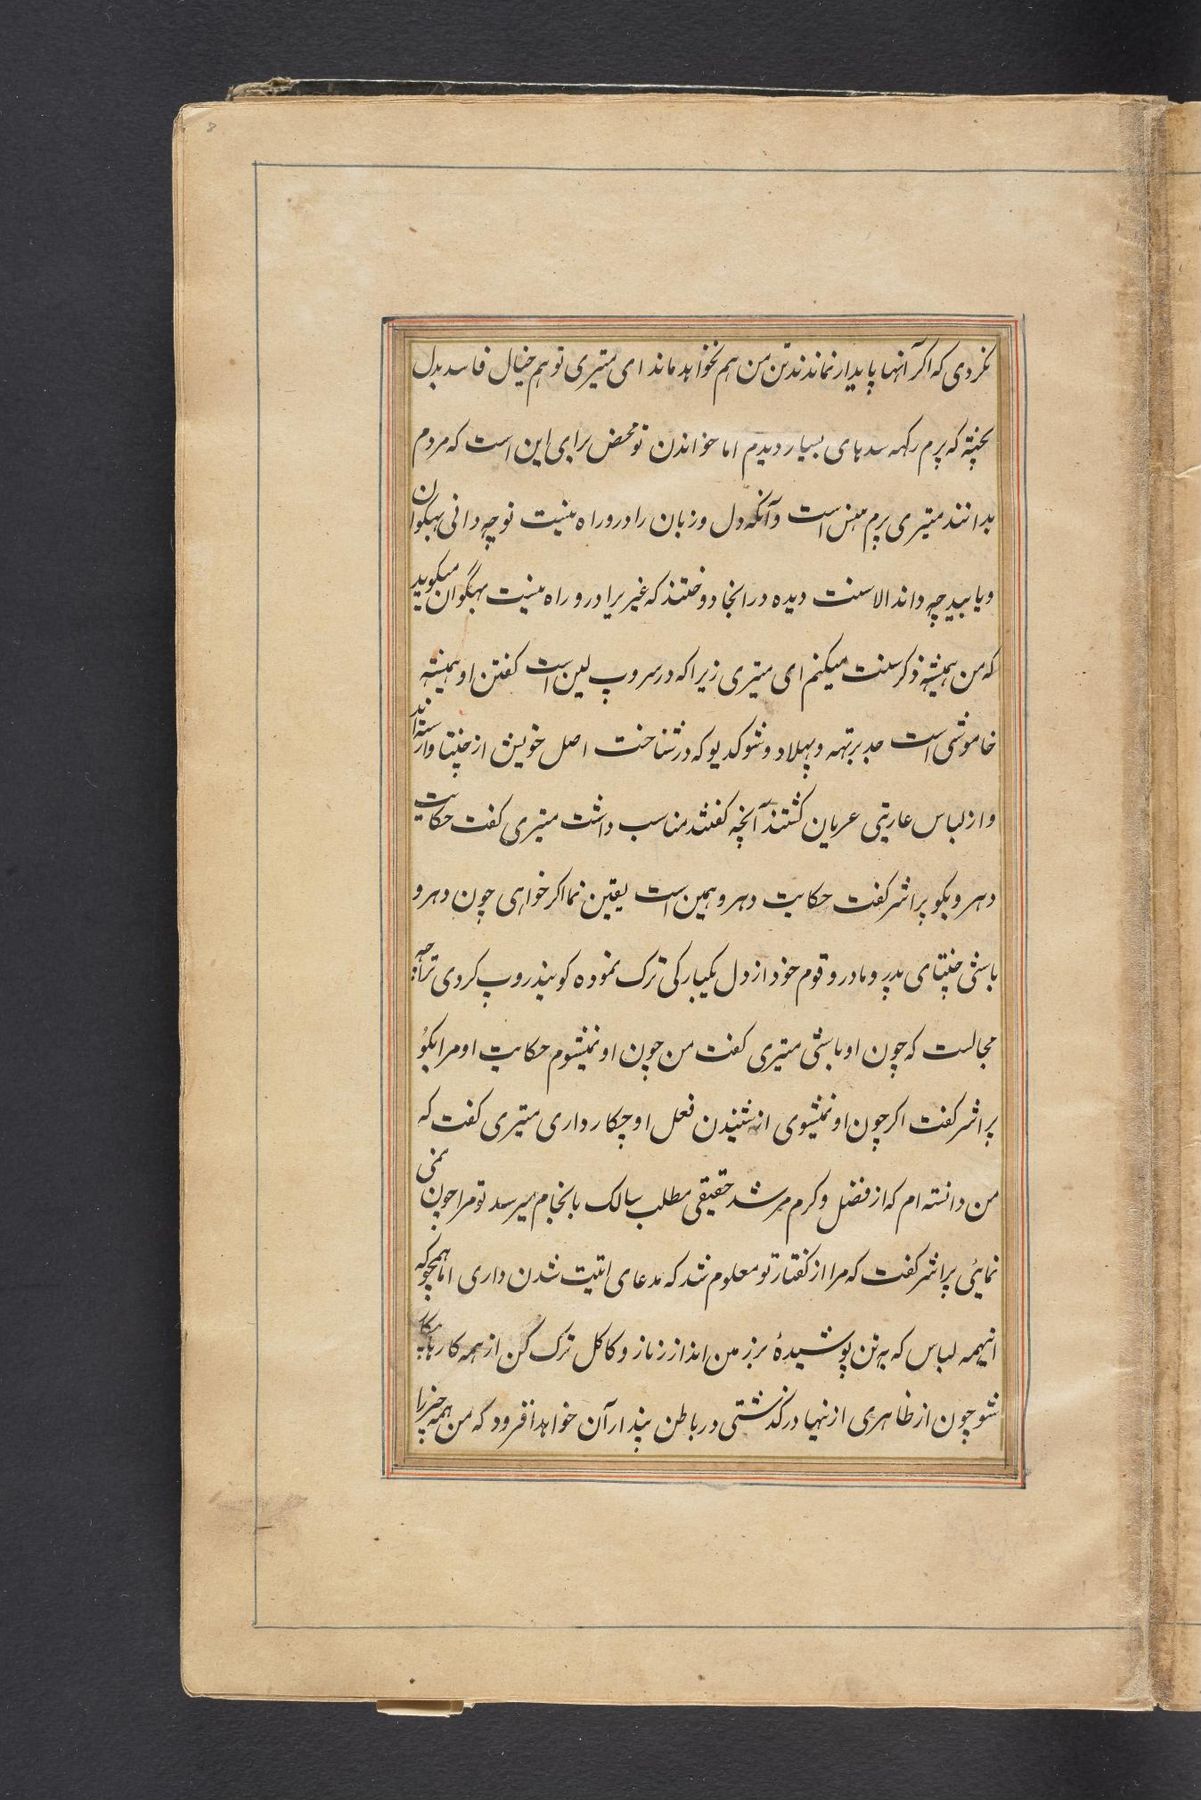 نکردی که اکر آنها پایدار نماندند تن من هم نخواهد ماند ای متیری تو هم خیال فاسد بدل
پخته که پرم رکهه سدهای بسیار دیدم اما خواندن تو محض برای این است که مردم
بدانند متیری پرم هنس است و آنکه دل و زبان را درو راه نیست تو چه دانی بهکوان
و یا بید چه داند الا سنت دیده در انجا دوختند که غیر یرا درو راه نیست بهگوان میکوید
که من همیشه ذکر سنت میکنم ای متیری زیرا که در سروپ لین است کفتن او همیشه
خاموشی است جدبرتهه و پهلاد و شوکدیو که در شناخت اصل خویش از چنتا وارسته اند
و از لباس عاریتی عریان کشتند آنچه کفتند مناسب داشت متیری کفت حکایت
دهرو بکو پراشر کفت حکایت دهرو همین است یقین نما اکر خواهی چون دهرو
باشی چنتای پدر و مادر و قوم خود از دل یکبارکی ترک نموده کوبند روپ کردی ترا چه
مجالست که چون او باشی متیری کفت من چون او نمیشوم حکایت او مرا بکو
پراشر کفت اکر چون او نمیشوی از شنیدن فعل او چکار داری متیری کفت که
من دانسته ام که از فضل و کرم مرشد حقیقی مطلب سالک بانجام میرسد تو مرا چون نمی
نمایئی پراشر کفت که مرا از کفتار تو معلوم شد که مدعای اتیت شدن داری اما همچو که
اینهمه لباس که به تن پوشیدهٔ بر زمن انداز زنار و کاکل ترک کن از همه کارها بیکار
شو چون از ظاهری ازینها در کذشتی در باطن پندار آن خواهد افزود که من همه چیز را